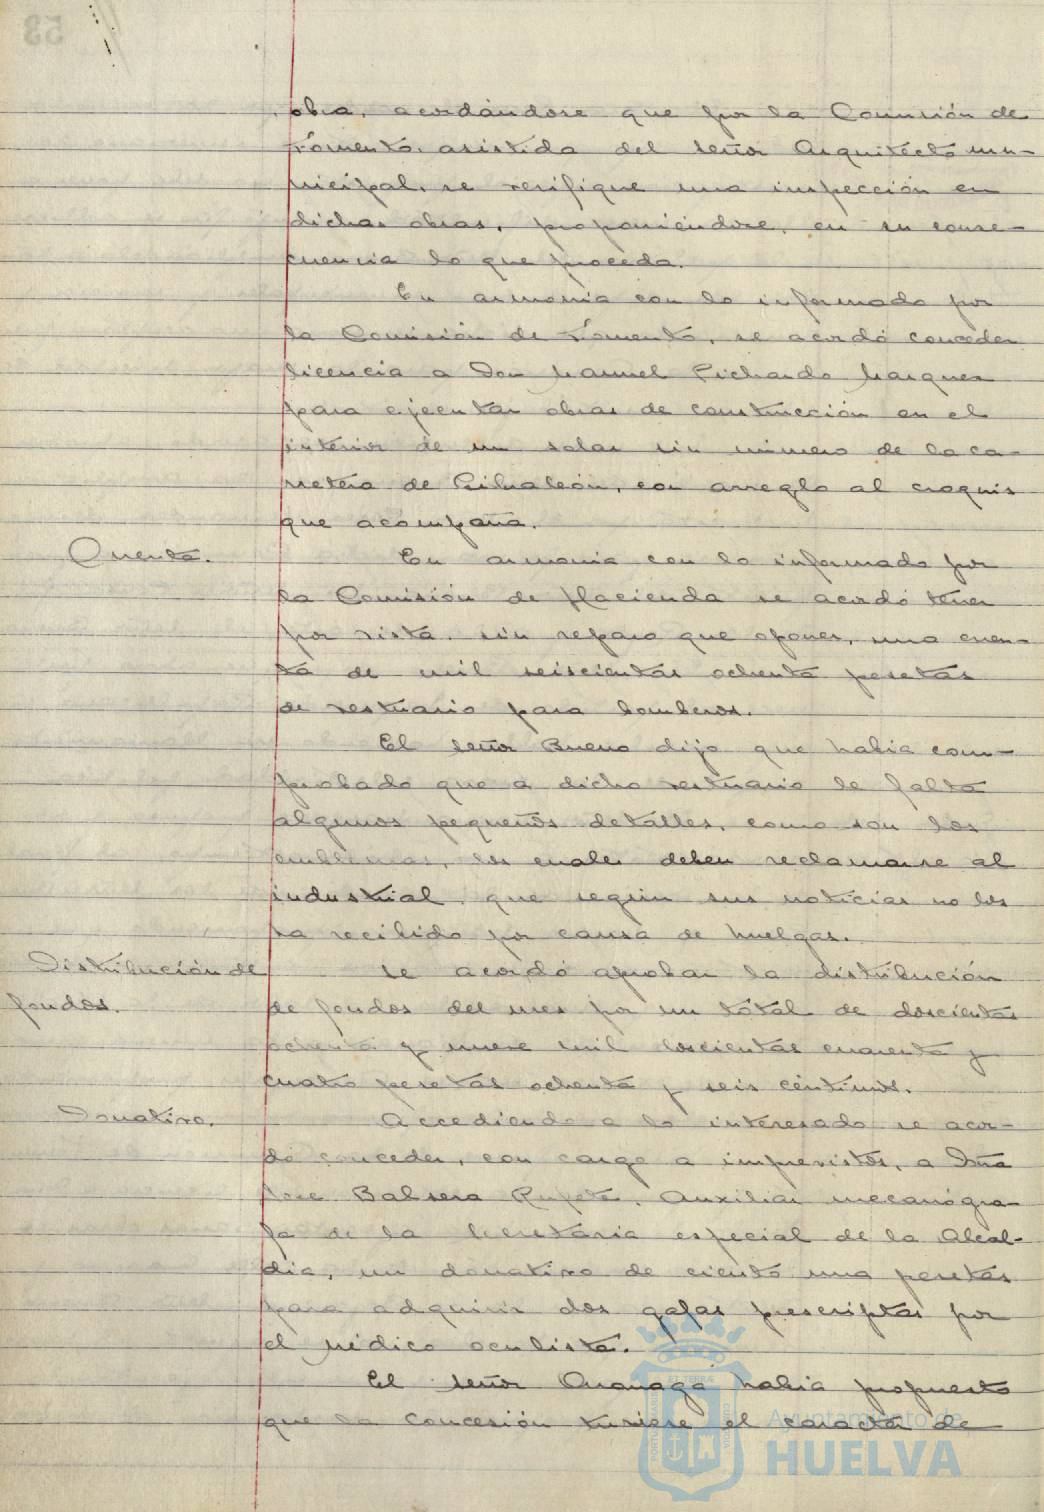 obra, acordándose que por la Comisión de
Fomento, asistida del señor Arquitecto mu-
nicipal, se verifique una inspección en
dichas obras, proponiéndose, en su conse-
cuencia lo que proceda.
En armonía con lo informado por
la Comisión de Fomento, se acordó conceder
licencia a Don Manuel Pichardo Marquez
para ejecutar obras de construcción en el
interior de un solar sin número de la ca-
rretera de Gibraleón, con arreglo al croquis
que acompaña.
Cuenta.
En armonía con lo informado por
la Comisión de Hacienda se acordó tener
por vista, sin reparo que oponer, una cuen-
ta de mil seiscientas ochenta pesetas
de vestuario para bomberos.
El señor Bueno dijo que había com-
probado que a dicho vestuario le falta
algunos pequeños detalles, como son los
emblemas, los cuales deben reclamarse al
industrial, que según sus noticias no los
ha recibido por causa de huelgas.
Distribución de
fondos.
Se acordó aprobar la distribución
de fondos del mes por un total de doscientas
ochenta y nueve mil doscientas cuarenta y
cuatro pesetas ochenta y seis céntimos.
Donativo.
Accediendo a lo interesado se acor-
dó conceder, con cargo a imprevistos, a Dña
Balsera Rufete, Auxiliar mecanógra-
fa de la Secretaría especial de la Alcal-
día, un donativo de ciento una pesetas
para adquirir dos gafas prescriptas por
el médico oculista.
El señor había propuesto
que la concesión tuviese el carácter de
Ayuntamiento de
HUELVA